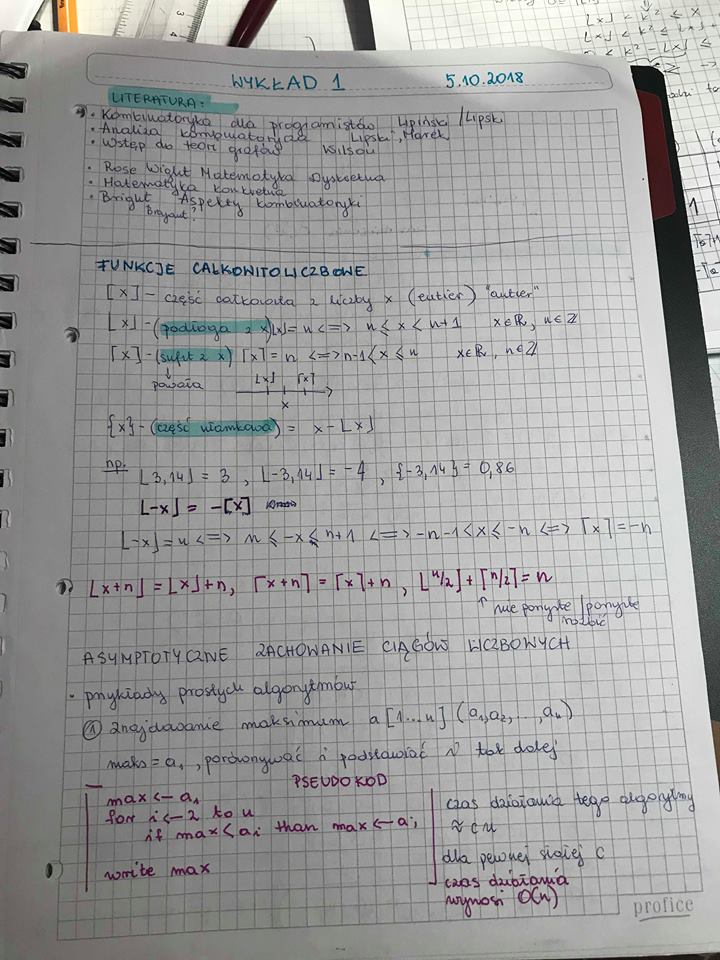 WYKŁAD 1 5.10.2018
LITERATURA:
• Kombinatoryka dla programistów Lipiński / Lipski
• Analiza kombinatoryczna Lipski, Marek
• Wstęp do teorii grafów Wilson
• Ross Wright Matematyka Dyskretna
• Matematyka konkretna
• Bright Aspekty kombinatoryki
Bryant?
FUNKCJE CAŁKOWITOLICZBOWE
[x] - część całkowita z liczby x (entier) "antier"
⌊x⌋ - (podłoga z x) ⌊x⌋ = n <=> n ≤ x < n+1 x∈ℝ, n∈ℤ
⌈x⌉ - (sufit z x) ⌈x⌉ = n <=> n-1 < x ≤ n x∈ℝ, n∈ℤ
↓
powała ⌊x⌋ ⌈x⌉
x
{x} - (część ułamkowa) = x - ⌊x⌋
np. ⌊3,14⌋ = 3, ⌊-3,14⌋ = -4, {-3,14} = 0,86
⌊-x⌋ = -⌈x⌉
⌊-x⌋ = n <=> n ≤ -x ≤ n+1 <=> -n-1 < x ≤ -n <=> ⌈x⌉ = -n
⌊x+n⌋ = ⌊x⌋+n, ⌈x+n⌉ = ⌈x⌉+n, ⌊n/2⌋ + ⌈n/2⌉ = n
↑ nie parzyste / parzyste
rozbić
ASYMPTOTYCZNE ZACHOWANIE CIĄGÓW LICZBOWYCH
• przykłady prostych algorytmów
① znajdowanie maksimum a[1...n] (a₁,a₂,...,aₙ)
maks = a₁, porównywać i podstawiać i tak dalej
PSEUDOKOD
max <- a₁
for i <- 2 to n
if max < aᵢ than max <- aᵢ
write max
czas działania tego algorytmu
≈ cn
dla pewnej stałej c
czas działania
wynosi O(n)
profice